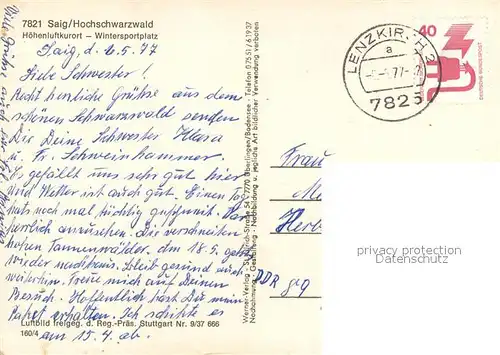 7821 Saig/Hochschwarzwald
Höhenluftkurort — Wintersportplatz
Saig, d. 6.5.77
Liebe Schwester!
Recht herzliche Grüße aus dem
schönen Schwarzwald senden
Dir Deine Schwester Klara
u. Fr. Schweinhammer.
Es gefällt uns sehr gut hier
und Wetter ist auch gut. Einen Tag
hats noch mal tüchtig geschneit. War
herrlich anzusehen. Die verschneiten
hohen Tannenwälder. Am 18.5. geht
wieder nachhaus. Bleib gesund auch
weiterhin. Freue mich auf Deinen
Besuch. Hoffentlich hast Du mein
Paket erhalten. Ich schickte es
am 15.4. ab.
Luftbild freigeg. d. Reg.-Präs. Stuttgart Nr. 9/37 666
160/4
Werner-Verlag - Suttrich-Straße 54 - 7770 Überlingen/Bodensee - Telefon 07551/61937
Nachahmung, Gestaltung - Nachbildung u. jegliche Art bildlicher Verwendung verboten
LENZKIRCH 2
a
77
7825
40
DEUTSCHE BUNDESPOST
Frau
DDR
privacy protection
for Customers